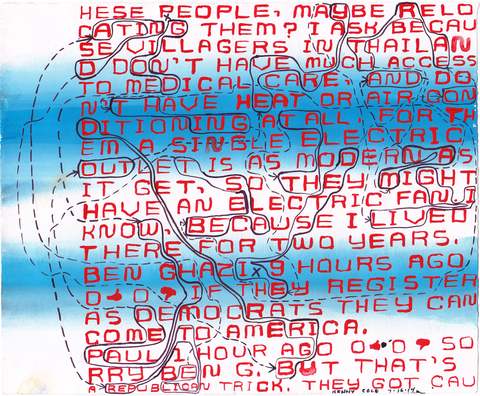 HESE PEOPLE, MAYBE RELO
CATING THEM? I ASK BECAU
SE VILLAGERS IN THAILAN
D DON'T HAVE MUCH ACCESS
TO MEDICAL CARE, AND DO
N'T HAVE HEAT OR AIR CON
DITIONING AT ALL. FOR TH
EM A SINGLE ELECTRIC
OUTLET IS AS MODERN AS
IT GET, SO THEY MIGHT
HAVE AN ELECTRIC FAN I
KNOW, BECAUSE I LIVED
THERE FOR TWO YEARS.
BEN GHAZI X 9 HOURS AGO
O O ? IF THEY REGISTER
AS DEMOCRATS THEY CAN
COME TO AMERICA.
PAUL 1 HOUR AGO O O SO
RRY BEN G. BUT THAT'S
A REPUBLICAN TRICK. THEY GOT CAU
KENNY COLE